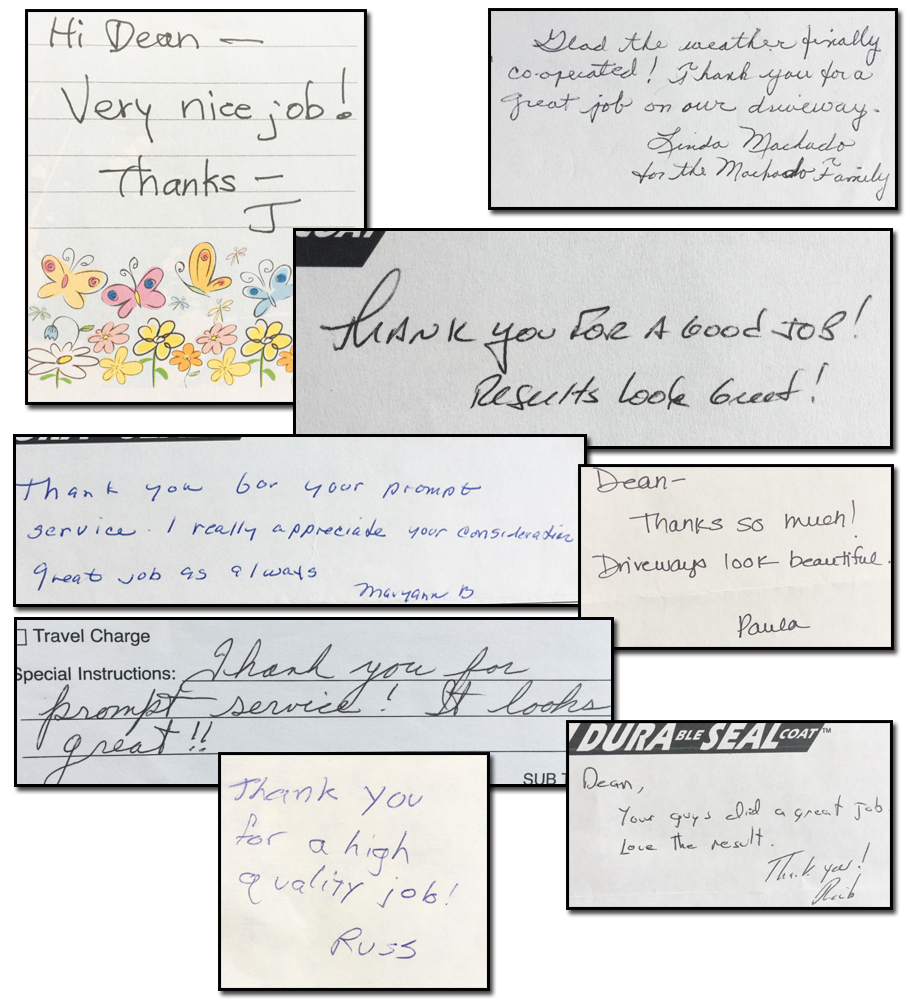 Hi Dean —
Very nice job!
Thanks —
J
Glad the weather finally
co-operated! Thank you for a
great job on our driveway.
Linda Machado
for the Machado Family
COAT
Thank you for a good job!
Results look Great!
Thank you for your prompt
service. I really appreciate your consideration
great job as always
Maryann B
Dean-
Thanks so much!
Driveways look beautiful.
Paula
Travel Charge
Special Instructions: Thank you for
prompt service! It looks
great!!
SUB T
Thank you
for a high
quality job!
Russ
DURABLE SEAL COAT™
Dean,
Your guys did a great job
Love the result.
Thank you!